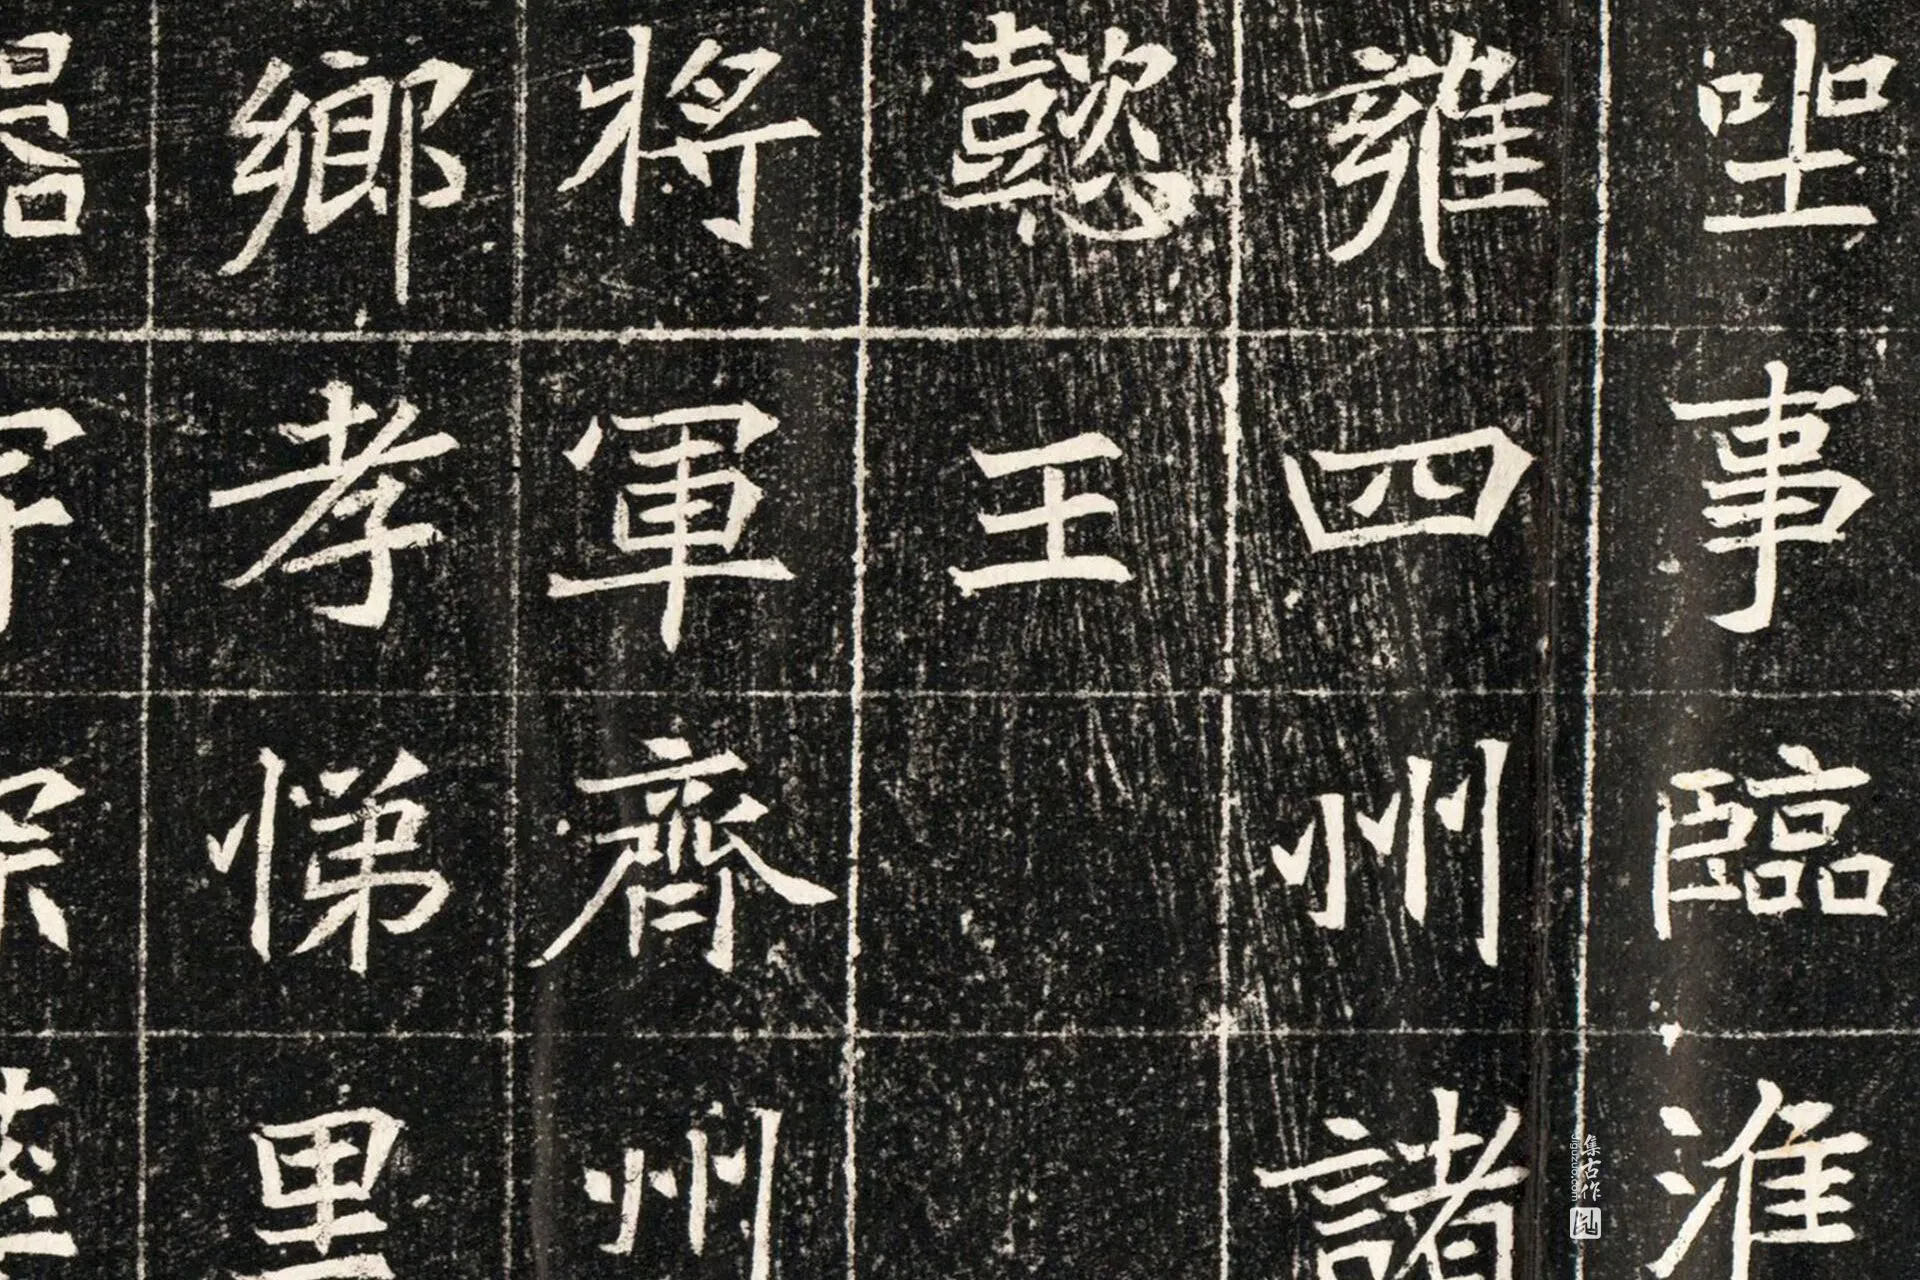 坐事臨淮
雍四州諸
懿王
將軍齊州
鄉孝悌里
集古作
Jiguzuo.com